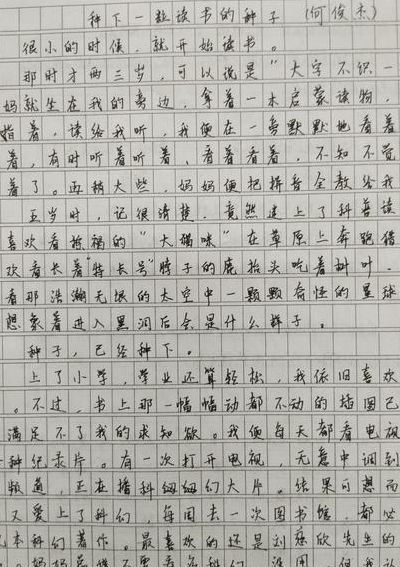 种下一数读书的种子 (何俊杰)
很小的时候，就开始读书。
那时才两三岁，可以说是“大字不识一
妈就坐在我的旁边，拿着一本启蒙读物，
指着，读给我听，我便在一旁默默地看着
着，有时听着听着，看着看着，不知不觉
着了。再稍大些，妈妈便把拼音全教给我
五岁时，记很清楚，竟然迷上了科普读
喜欢看棕褐的“大猫咪”在草原上奔跑猎
欢看长着“特长号”脖子的鹿抬头吃着树叶，
看那浩瀚无垠的太空中一颗颗奇怪的星球
想象着进入黑洞后会是什么样子。
种子，已经种下。
上了小学，学业还算轻松，我依旧喜欢
。不过，书上那一幅幅动都不动的插图已
满足不了我的求知欲。我便每天都看电视
种纪录片。有一次打开电视，无意中调到
频道，正在播科幻大片。结果可想而
又爱上了科幻，每周去一次图书馆，都必
本科幻著作。最喜欢的还是刘慈欣先生的